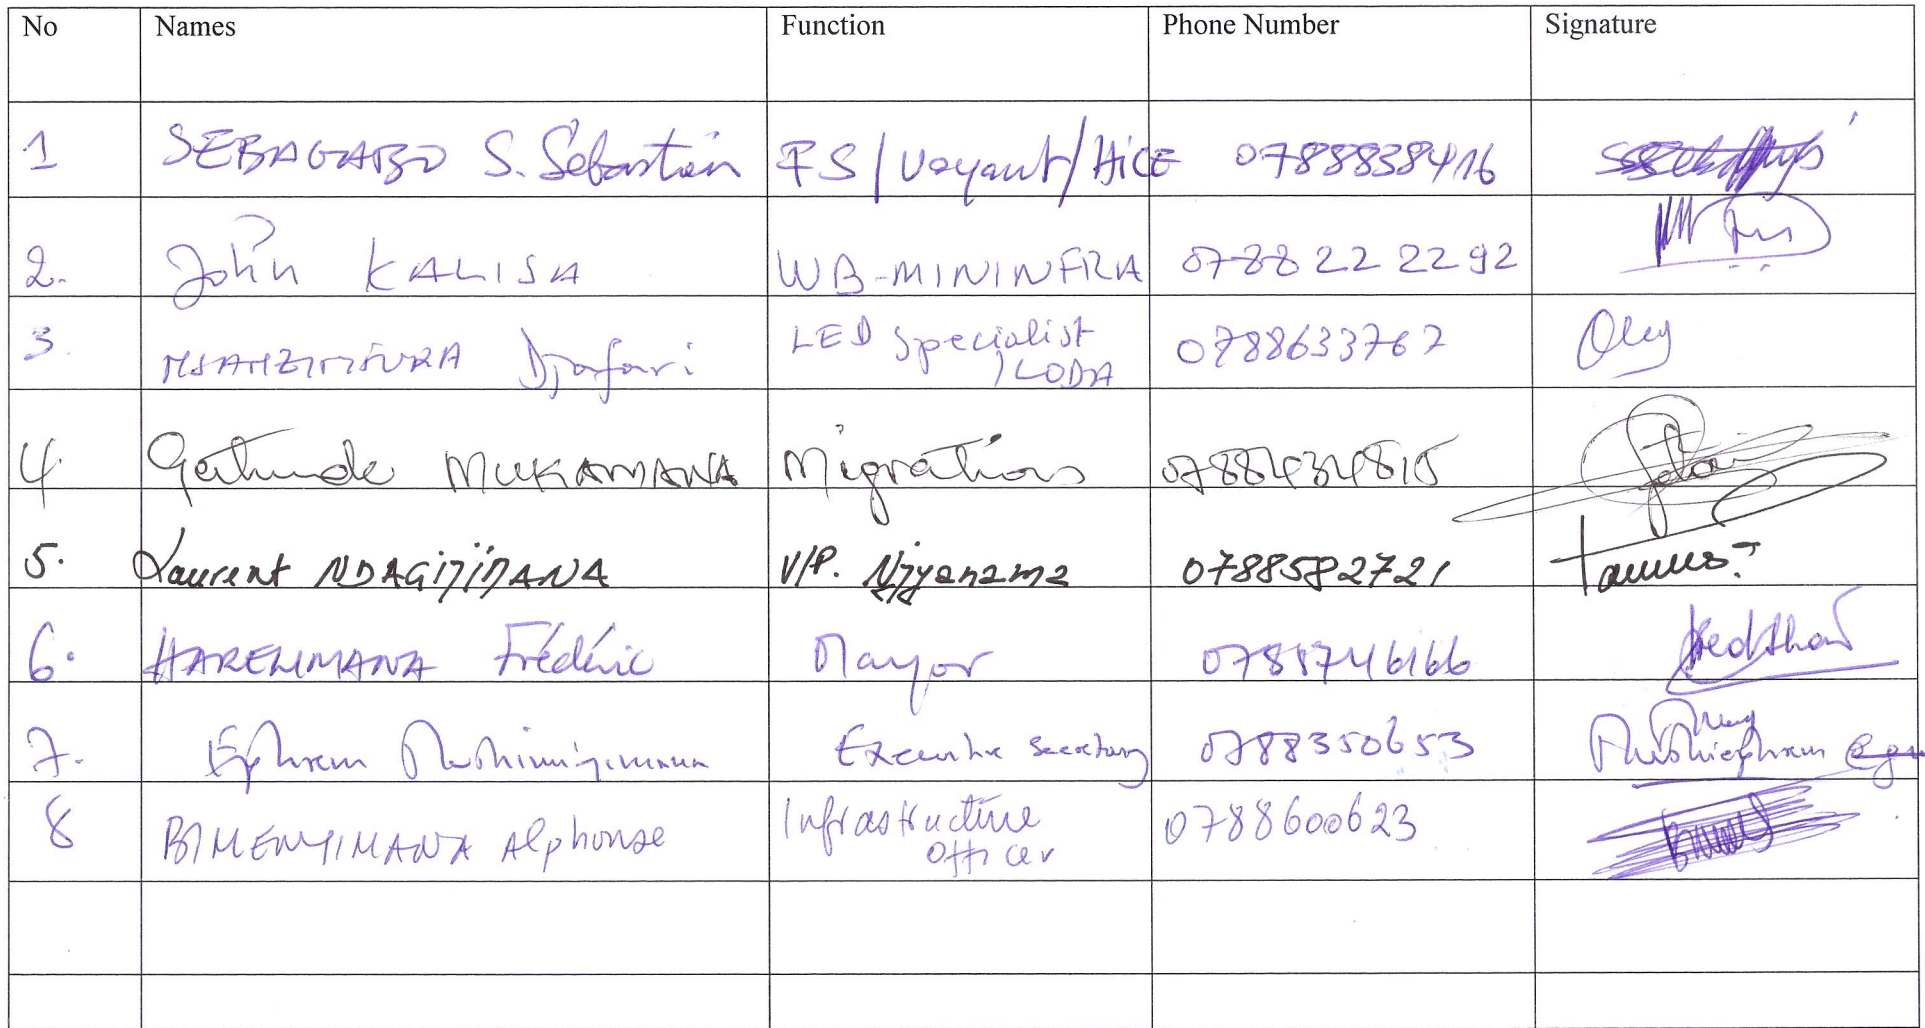 No Names Function Phone Number Signature
1 SEBAGABO S. Sebastien ES/ /
0788838416
2. John KALISA WB-MININFRA 0788 22 22 92
3 Djafari LED Specialist 0788633767
/LODA
4. Gertrude MUKAMANA Migrations 0788434815
5. Laurent NDAGIJIMANA V/P. Njyanama 0788582721
6. HARELIMANA Frédéric Mayor 0788746166
7. Ephrem Rushimiyimana Executive Secretary 0788350653
8 BIMENYIMANA Alphonse Infrastructure 0788600623
Officer